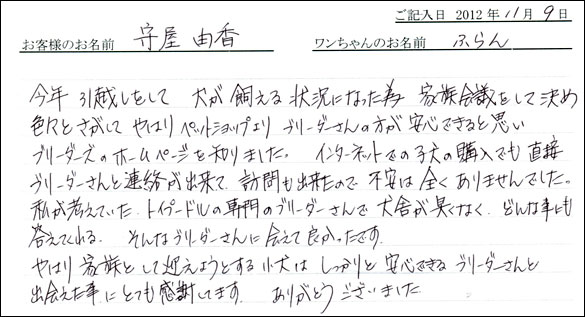 ご記入日 2012 年 11 月 9 日
お客様のお名前 守屋 由香 ワンちゃんのお名前 ふらん
今年 引越しをして 犬が飼える 状況になった為 家族会議をして決め
色々とさがして やはり ペットショップより ブリーダーさんの方が 安心できると思い
ブリーダーズのホームページを知りました。 インターネットでの子犬の購入でも 直接
ブリーダーさんと連絡が出来て、訪問も出来たので 不安は全くありませんでした。
私が考えていた、トイプードルの専門のブリーダーさんで 犬舎が臭くなく、どんな事にも
答えてくれる。 そんなブリーダーさんに会えて良かったです。
やはり 家族として迎えようとする小犬は しっかりと 安心できる ブリーダーさんと
出会えた事にとても感謝してます。 ありがとう ございました